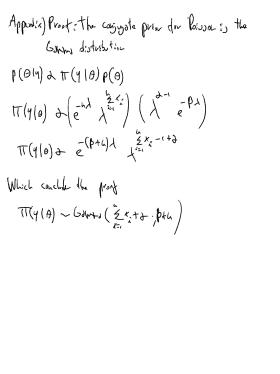 Appendix) Proof: The conjugate prior for Poisson is the
Gamma distribution
P(θ|y) ∝ π(y|θ) p(θ)
π(y|θ) ∝ (e^{-nλ} λ^{∑_{i=1}^{n} x_i}) (λ^{α-1} e^{-βλ})
π(y|θ) ∝ e^{-(β+n)λ} λ^{∑_{i=1}^{n} x_i -1+α}
Which conclude the proof
π(y|θ) ~ Gamma(∑_{i=1}^{n} x_i + α, β+n)